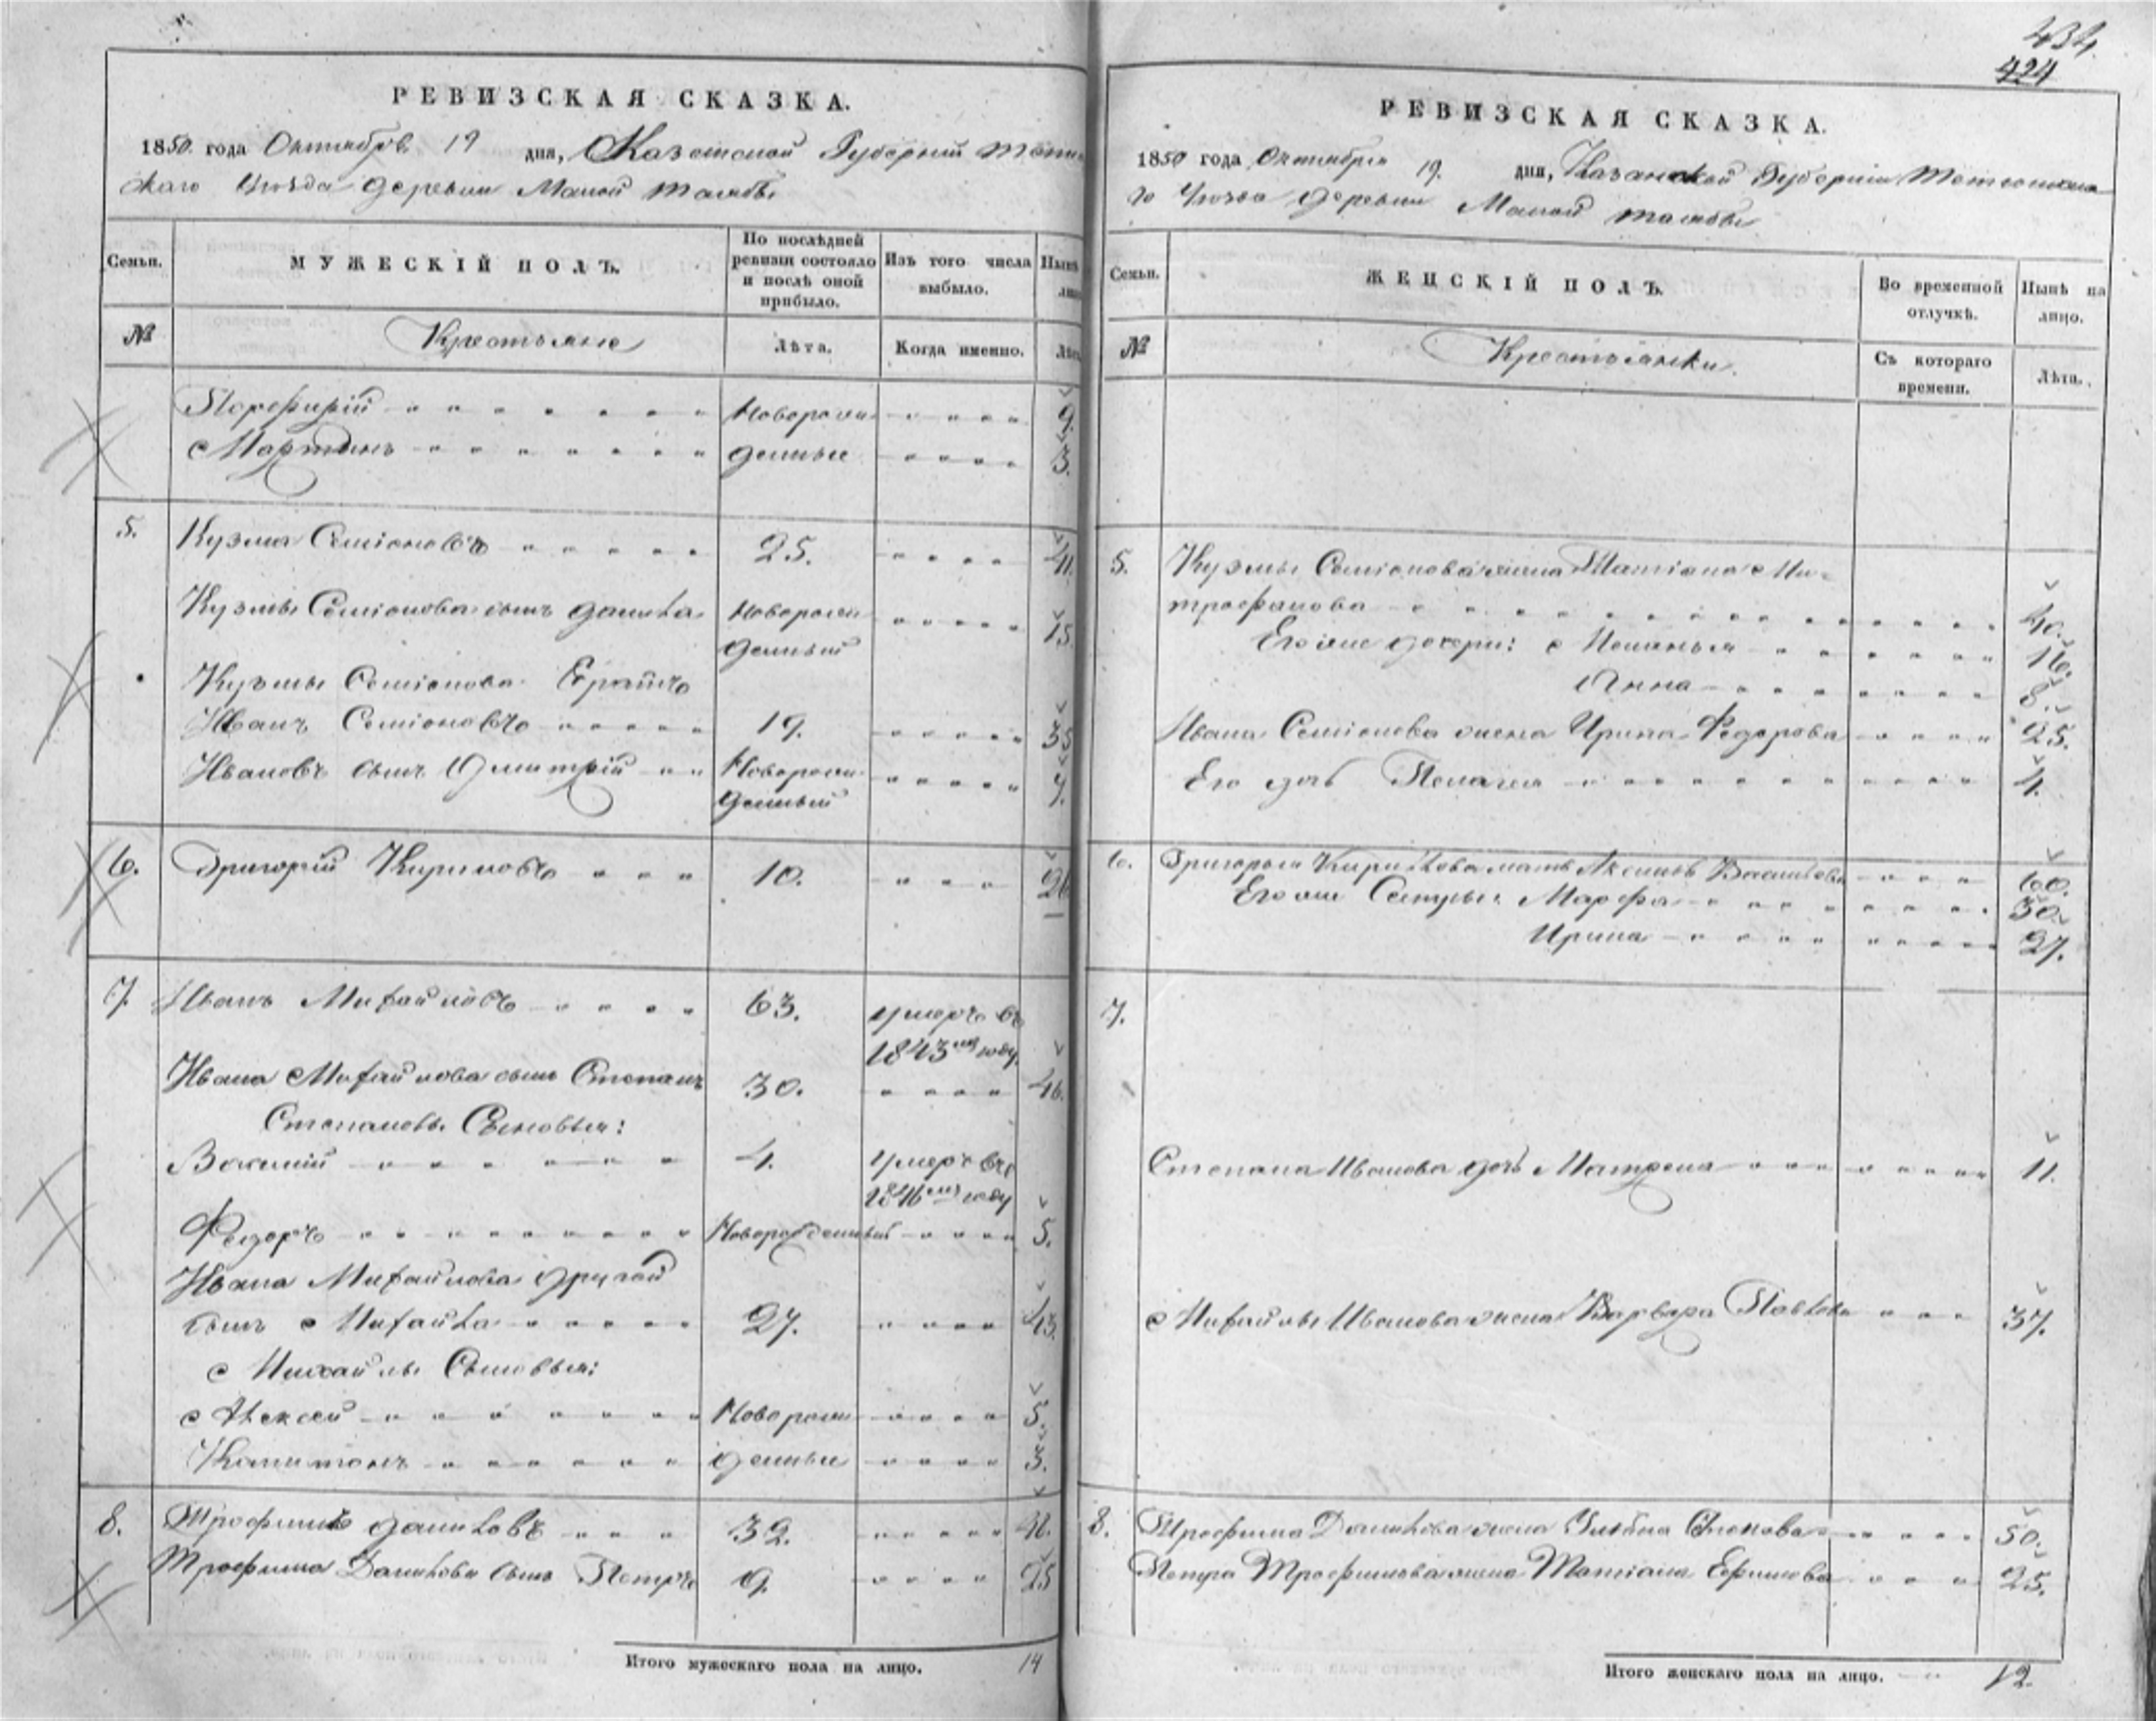 434
424
РЕВИЗСКАЯ СКАЗКА.
1850 года Октября 19 дня, Казанской Губерніи Тетю
скаго Уѣзда деревни Малой
Семьи.
МУЖЕСКІЙ ПОЛЪ.
По послѣдней ревизіи состояло и послѣ оной прибыло.
Изъ того числа выбыло.
Нынѣ
№
Крестьяне
Лѣта.
Когда именно.
Порфирій Новорож 9.
Мартинъ денные 3.
5. Кузма Семіоновъ 25. 41.
Кузмы Семіонова сынъ Данила Новорож 15.
денный
Кузмы Семіонова братъ
Иванъ Семіоновъ 19. 35
Ивановъ сынъ Дмитрій Новорож
денный
6. Григорій Кириловъ 10. 26
7. Иванъ Михайловъ 63. умеръ въ
1843мъ году.
Ивана Михайлова сынъ Степанъ 30. 46.
Степановы Сыновья:
Василій 4. умеръ въ
1846мъ году
Федоръ Новорожденный 5.
Ивана Михайлова другой
сынъ Михайла 27. 43.
Михайлы Сыновья:
Алексей Новорож 5.
Капитонъ денные 3.
8. Трофимъ Даниловъ 32. 48.
Трофима Данилова сынъ Петръ 9. 25
Итого мужескаго пола на лицо. 14
РЕВИЗСКАЯ СКАЗКА.
1850 года Октября 19. дня, Казанской Губерніи Тетюшска
го Уѣзда деревни Малой
Семьи.
ЖЕНСКІЙ ПОЛЪ.
Во временной отлучкѣ.
Нынѣ на лицо.
№
Крестьянки.
Съ котораго времени.
Лѣта.
5. Кузмы Семіонова жена Татіана Ми-
трофанова 40.
Его же дочери: Меланья 16.
Анна 8.
Ивана Семіонова жена Ирина Федорова 25.
Его дочь Пелагея 4.
6. Григорья Кирилова мать Аксинья Васильева 60.
Его же Сестры: Марфа 30.
Ирина 27.
7.
Степана Иванова дочь Матрена 11.
Михайлы Иванова жена Варвара Павлова 37.
8. Трофима Данилова жена 50.
Петра Трофимова жена Татіана Ефимова 25.
Итого женскаго пола на лицо. 12